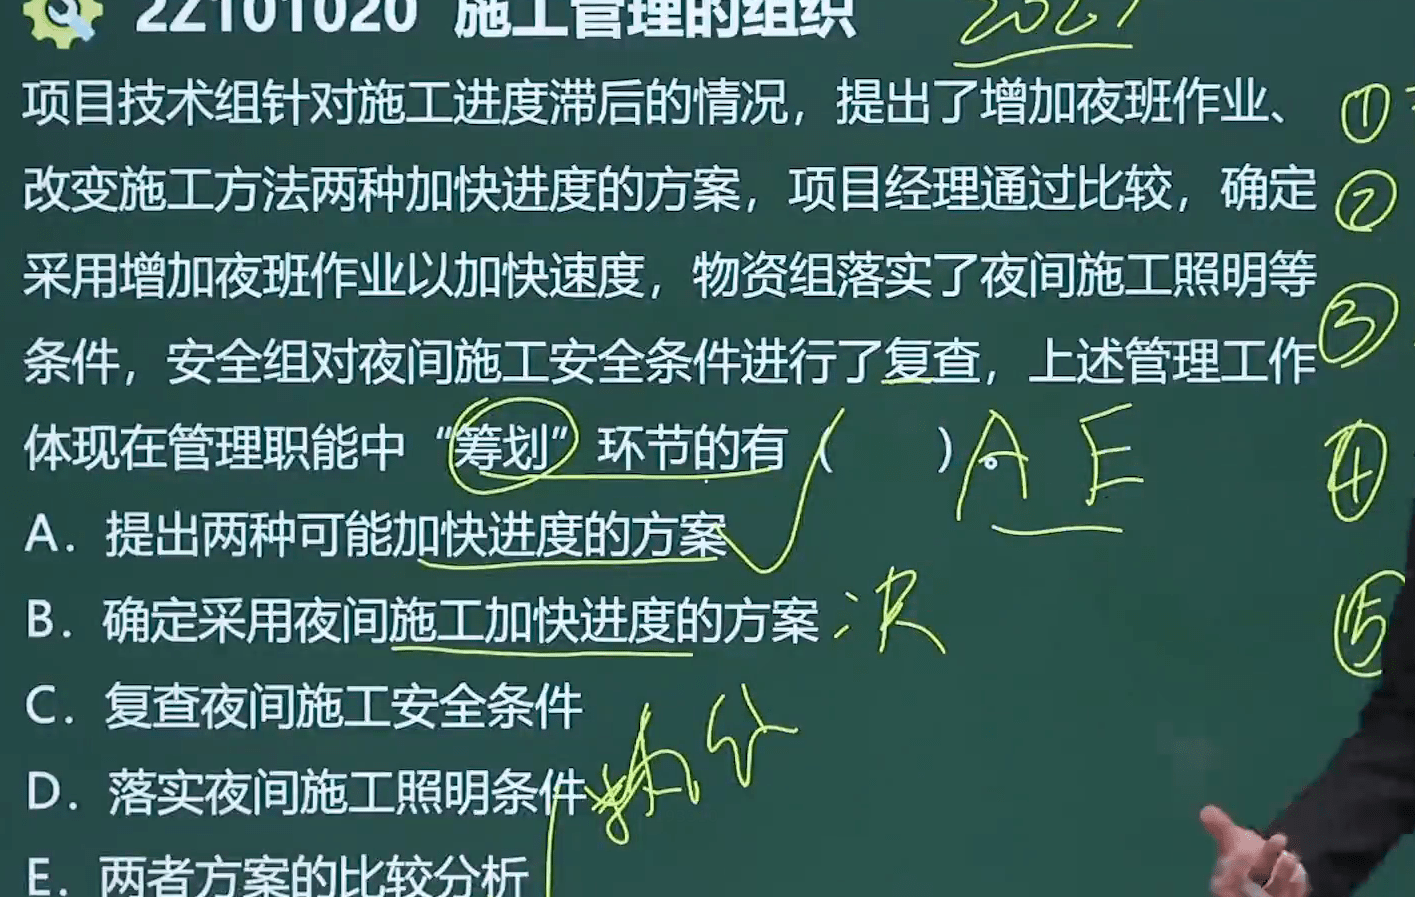 2Z101020 施工管理的组织
202
项目技术组针对施工进度滞后的情况，提出了增加夜班作业、
①
改变施工方法两种加快进度的方案，项目经理通过比较，确定
②
采用增加夜班作业以加快速度，物资组落实了夜间施工照明等
③
条件，安全组对夜间施工安全条件进行了复查，上述管理工作
体现在管理职能中“筹划”环节的有（ ）。
A E
④
A．提出两种可能加快进度的方案
B．确定采用夜间施工加快进度的方案
决
⑤
C．复查夜间施工安全条件
D．落实夜间施工照明条件
执行
E．两者方案的比较分析